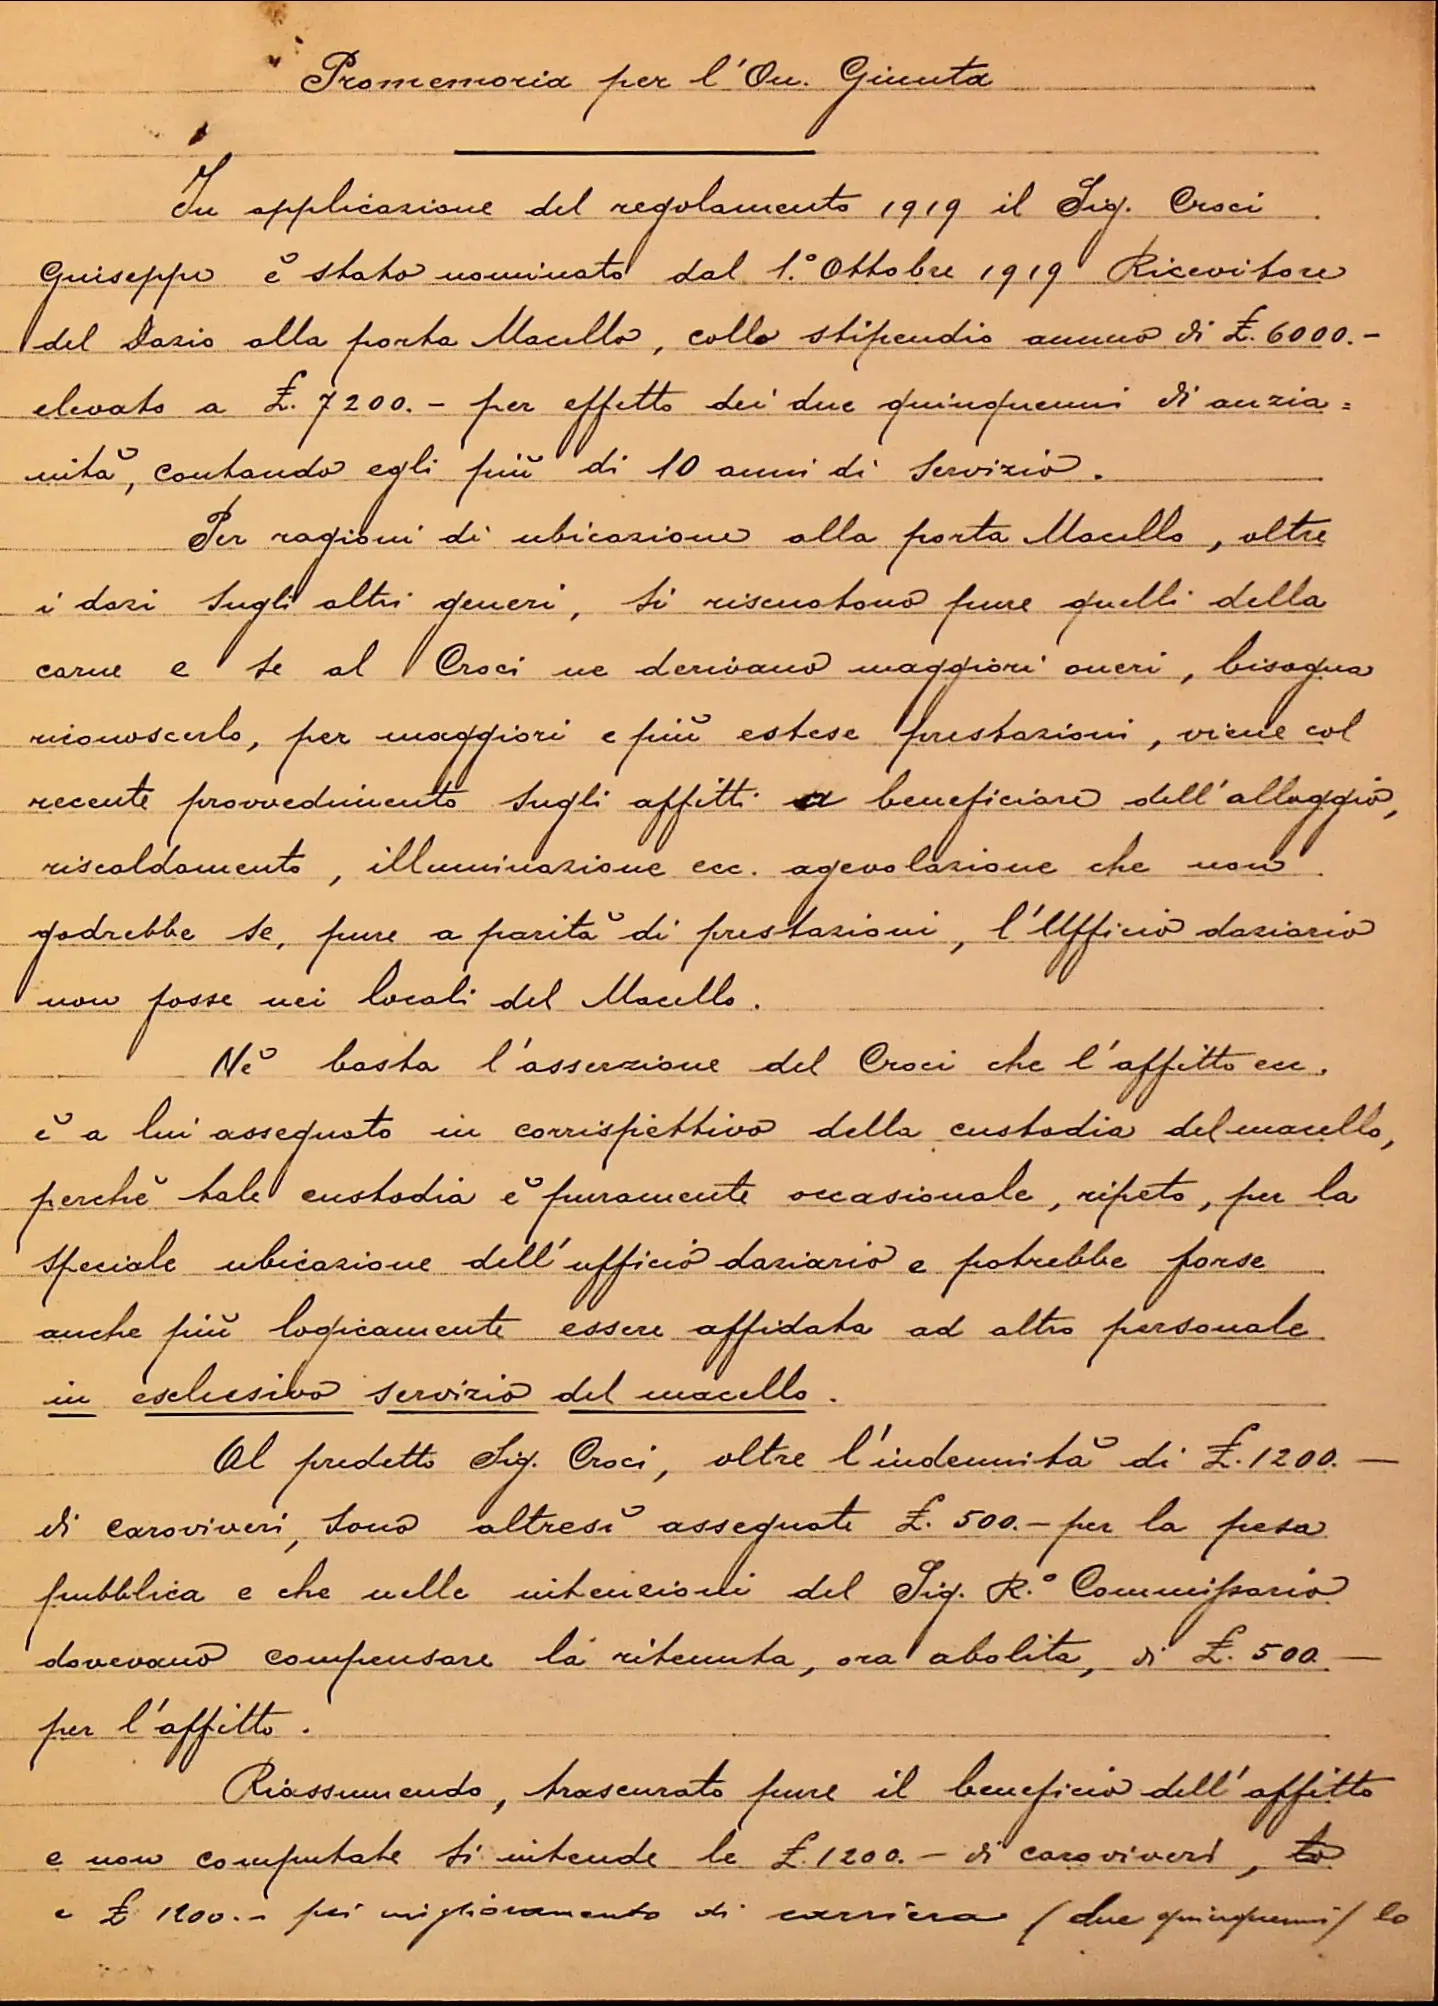 Promemoria per l'On. Giunta
In applicazione del regolamento 1919 il Sig. Croci
Guiseppe è stato nominato dal 1.° Ottobre 1919 Ricevitore
del Dazio alla porta Macello, collo stipendio annuo di £. 6000.-
elevato a £. 7200.- per effetto dei due quinquenni di anzia=
nità, contando egli più di 10 anni di servizio.
Per ragioni di ubicazione alla porta Macello, oltre
i dazi sugli altri generi, si riscuotono pure quelli della
carne e se al Croci ne derivano maggiori oneri, bisogna
riconoscerlo, per maggiori e più estese prestazioni, viene col
recente provvedimento sugli affitti a beneficiare dell'alloggio,
riscaldamento, illuminazione ecc. agevolazione che non
godrebbe se, pure a parità di prestazioni, l'Ufficio daziario
non fosse nei locali del Macello.
Nè basta l'asserzione del Croci che l'affitto ecc.
è a lui assegnato in corrispettivo della custodia del macello,
perchè tale custodia è puramente occasionale, ripeto, per la
speciale ubicazione dell'ufficio daziario e potrebbe forse
anche più logicamente essere affidata ad altro personale
in esclusivo servizio del macello.
Al predetto Sig. Croci, oltre l'indennità di £. 1200.—
di caroviveri, sono altresì assegnate £. 500.- per la pesa
pubblica e che nelle intenzioni del Sig. R.° Commissario
dovevano compensare la ritenuta, ora abolita, di £. 500 —
per l'affitto.
Riassumendo, trascurato pure il beneficio dell'affitto
e non computate si intende le £. 1200.- di caroviveri, to
e £ 1200.- pei miglioramento di carriera (due quinquenni) lo